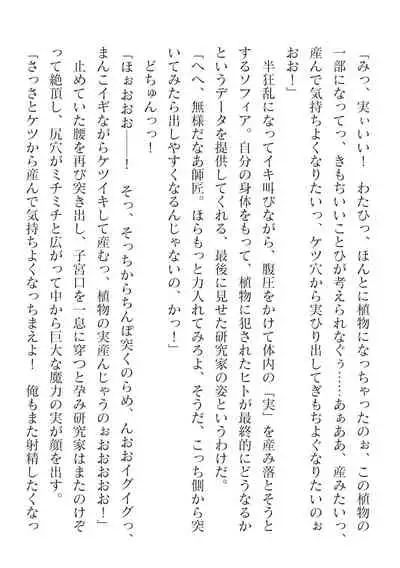 「みっ、実ぃいい！　わたひっ、ほんとに植物になっちゃったのぉ、この植物の
一部になってっ、きもぢいいことひが考えられなぐぅ……あぁああ、産みたいっ、
産んで気持ちよくなりたいっ、ケツ穴から実ひり出してぎもぢよぐなりたいのぉ
おお！」
　半狂乱になってイキ叫びながら、腹圧をかけて体内の「実」を産み落とそうと
するソフィア。自分の身体をもって、植物に犯されたヒトが最終的にどうなるか
というデータを提供してくれる、最後に見せた研究家の姿というわけだ。
「へへ、無様だなあ師匠。ほらもっと力入れてみろよ、そうだ、こっち側から突
いてみたら出しやすくなるんじゃないの、かっ！」
　どちゅんっっ！
「ほぉおおお――！　そっ、そっちからちんぽ突くのらめ、んおおイグイグっ、
まんこイギながらケツイキして産むっ、植物の実産んじゃうのぉおおおおお！」
　止めていた腰を再び突き出し、子宮口を一息に穿つと孕み研究家はまたのけぞ
って絶頂し、尻穴がミチミチと広がって中から巨大な魔力の実が顔を出す。
「さっさとケツから産んで気持ちよくなっちまえよ！　俺もまた射精したくなっ